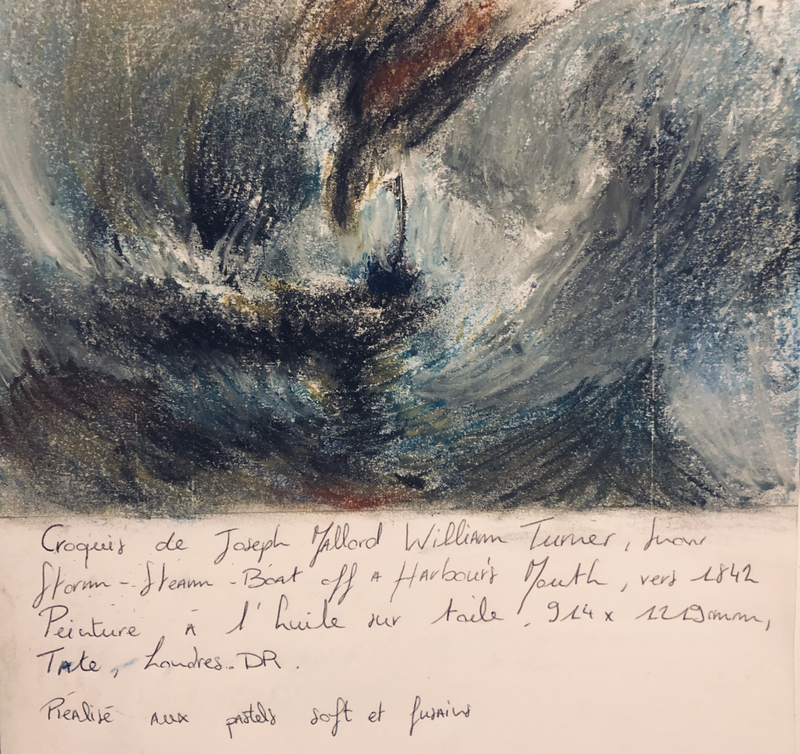 Croquis de Joseph Mallord William Turner, Snow
Storm - Steam - Boat off a Harbour's Mouth, vers 1842
Peinture à l'huile sur toile, 914 x 1219mm,
Tate, Londres. DR.
Réalisé aux pastels soft et fusains